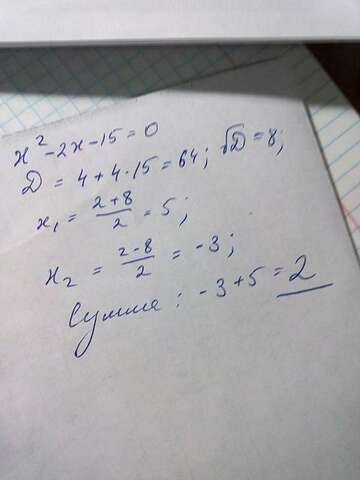 x² - 2x - 15 = 0
D = 4 + 4·15 = 64; √D = 8;
x₁ = (2+8)/2 = 5;
x₂ = (2-8)/2 = -3;
Сумма: -3 + 5 = 2